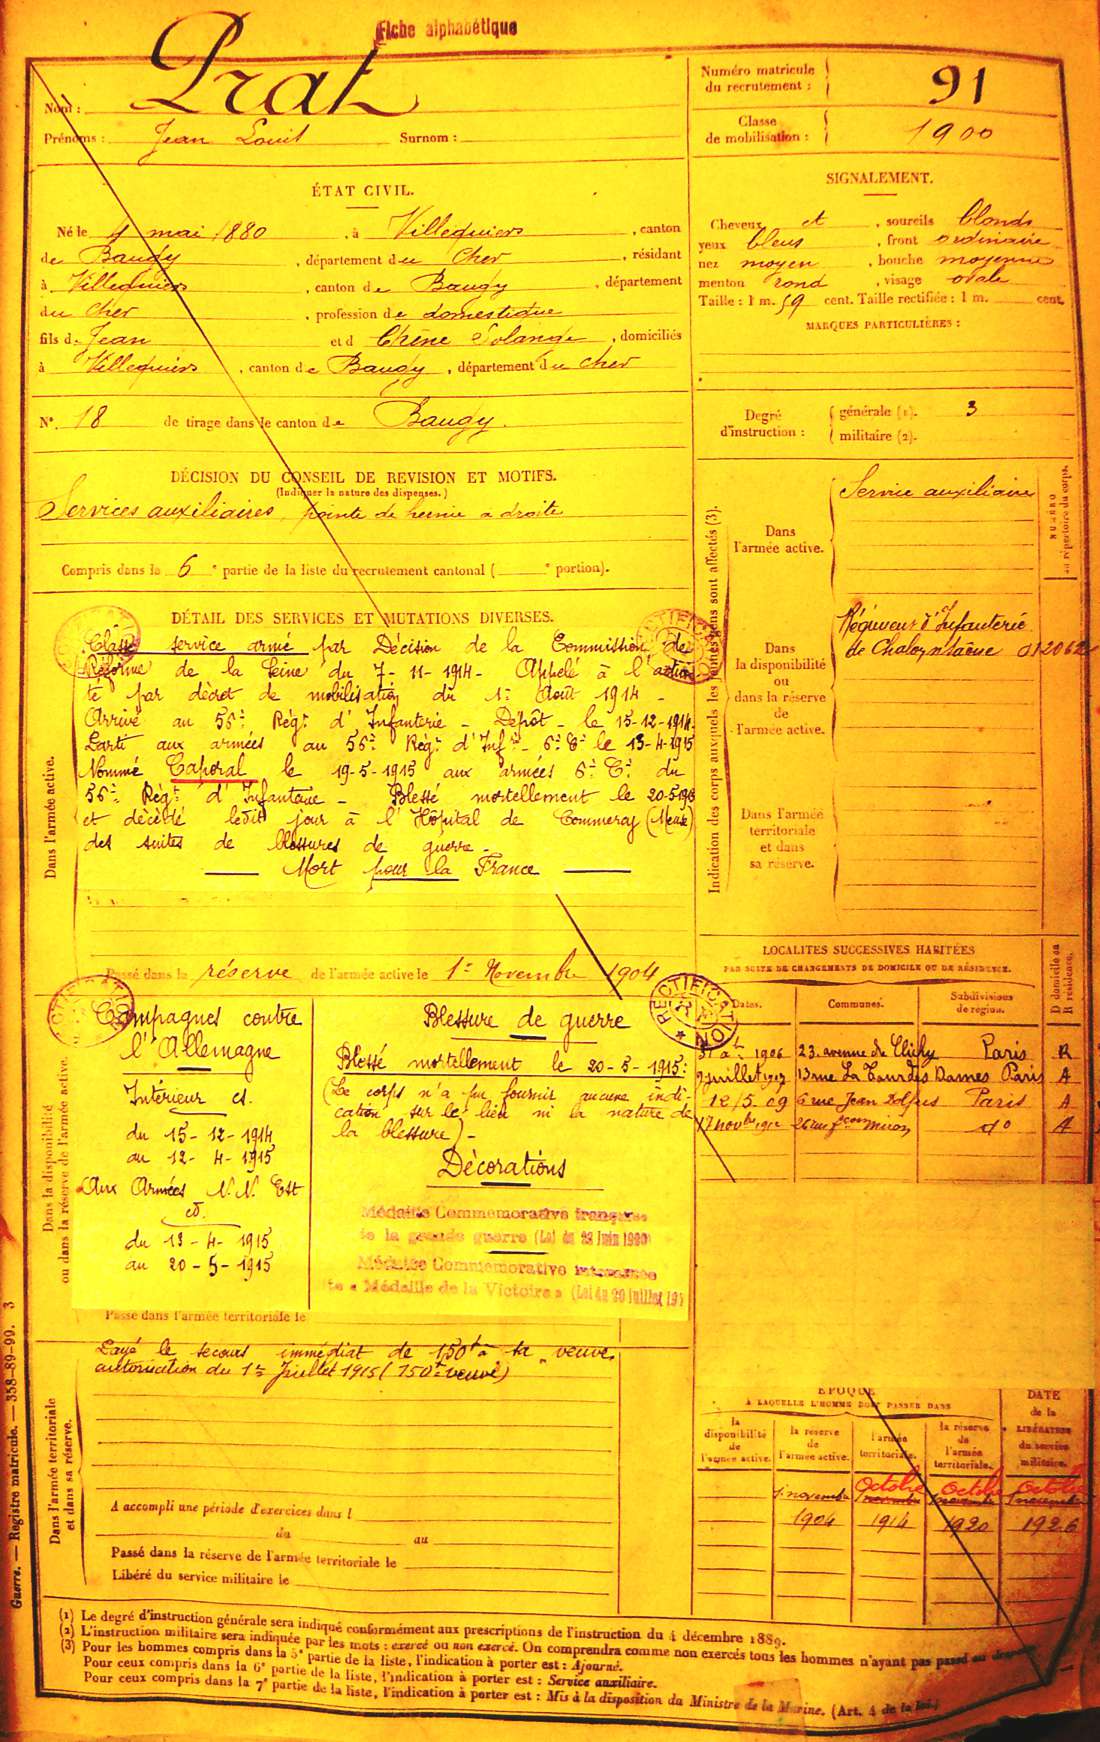 Fiche alphabétique
Nom : Prat
Prénoms : Jean Louis Surnom :
Numéro matricule du recrutement : 91
Classe de mobilisation : 1900
ÉTAT CIVIL.
Né le 4 mai 1880, à Villequiers, canton
de Baugy, département du Cher, résidant
à Villequiers, canton de Baugy, département
du Cher, profession de domestique
fils de Jean et d Chêne Solange, domiciliés
à Villequiers, canton de Baugy, département du Cher
N°. 18 de tirage dans le canton de Baugy.
SIGNALEMENT.
Cheveux et, sourcils blonds
yeux bleus, front ordinaire
nez moyen, bouche moyenne
menton rond, visage ovale
Taille : 1 m. 59 cent. Taille rectifiée : 1 m. cent.
MARQUES PARTICULIÈRES :
Degré d'instruction : générale (1). 3
militaire (2).
DÉCISION DU CONSEIL DE REVISION ET MOTIFS.
(Indiquer la nature des dispenses.)
Services auxiliaires, pointe de hernie a droite
Compris dans la 6e partie de la liste du recrutement cantonal ( e portion).
Indication des corps auxquels les jeunes gens sont affectés (3).
NUMÉRO
au répertoire du corps.
Dans l'armée active.
Service auxiliaire
Dans la disponibilité ou dans la réserve de l'armée active.
Régiment d'Infanterie
012062
Dans l'armée territoriale et dans sa réserve.
DÉTAIL DES SERVICES ET MUTATIONS DIVERSES.
Dans l'armée active.
RECTIFICATION
RECTIFICATION
Classé service armé par Décision de la Commission de
Réforme de la Seine du 7-11-1914 - Appelé à l'activi
té par décret de mobilisation du 1er Août 1914 -
Arrivé au 56e Régt d'Infanterie - Dépôt - le 15-12-1914.
Parti aux armées au 56e Régt d'Infie - 6e Cie le 13-4-1915
Nommé Caporal le 19-5-1915 aux armées 6e Cie du
56e Régt d'Infanterie - Blessé mortellement le 20-5-1915
et décédé ledit jour à l'Hôpital de Commercy (Meuse)
des suites de blessures de guerre -
Mort pour la France
Passé dans la réserve de l'armée active le 1er Novembre 1904
Dans la disponibilité
ou dans la réserve de l'armée active.
RECTIFICATION
RECTIFICATION
Campagnes contre
l'Allemagne
Intérieur cs.
du 15-12-1914
au 12-4-1915
Aux Armées N. N. Est
cd.
du 13-4-1915
au 20-5-1915
Blessure de guerre
Blessé mortellement le 20-5-1915 :
(Le corps n'a pu fournir aucune indi-
cation sur le lieu ni la nature de
la blessure) -
Décorations
Médaille Commemorative française
de la grande guerre (Loi du 23 Juin 1920)
Médaille Commemorative interalliée
dite « Médaille de la Victoire » (Loi du 20 juillet 19
LOCALITÉS SUCCESSIVES HABITÉES
PAR SUITE DE CHANGEMENTS DE DOMICILE OU DE RÉSIDENCE.
Dates. Communes. Subdivisions de région. D domicile ou R résidence.
1906 23. avenue de Clichy Paris R
9 juillet 1907 13 rue La Tour des Dames Paris A
12/5 09 6 rue Jean Dolfus Paris A
17 novbre 1912 26 rue fçois Miron do A
Passé dans l'armée territoriale le
Payé le secours immédiat de 150f à sa veuve
autorisation du 1er Juillet 1915 (150f veuve)
Dans l'armée territoriale
et dans sa réserve.
A accompli une période d'exercices dans l
du au
Passé dans la réserve de l'armée territoriale le
Libéré du service militaire le
ÉPOQUE
À LAQUELLE L'HOMME DOIT PASSER DANS
la disponibilité de l'armée active.
la réserve de l'armée active.
l'armée territoriale.
la réserve de l'armée territoriale.
DATE de la LIBÉRATION du service militaire.
Octobre Octobre Octobre
1 novembre 1 novembre 1 novembre 1 novembre
1904 1914 1920 1926
Guerre. — Registre matricule. — 358-89-99. 3
(1) Le degré d'instruction générale sera indiqué conformément aux prescriptions de l'instruction du 4 décembre 1889.
(2) L'instruction militaire sera indiquée par les mots : exercé ou non exercé. On comprendra comme non exercés tous les hommes n'ayant pas passé au
(3) Pour les hommes compris dans la 5e partie de la liste, l'indication à porter est : Ajourné.
Pour ceux compris dans la 6e partie de la liste, l'indication à porter est : Service auxiliaire.
Pour ceux compris dans la 7e partie de la liste, l'indication à porter est : Mis à la disposition du Ministre de la Marine. (Art. 4 de la loi.)